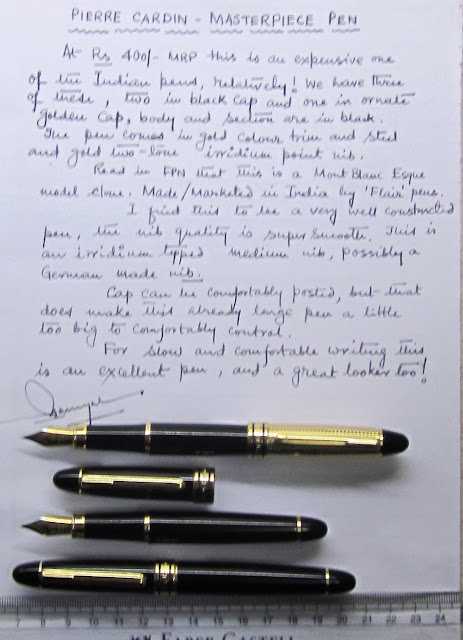 PIERRE CARDIN - MASTERPIECE PEN
At Rs 400/- MRP this is an expensive one
of the Indian pens, relatively! We have three
of these, two in black cap and one in ornate
golden cap, body and section are in black.
The pen comes in gold colour trim and steel
and gold two-tone irridium point nib.
Read in FPN that this is a Mont Blanc Esque
model clone. Made/Marketed in India by 'Flair' pens.
I find this to be a very well constructed
pen, the nib quality is super smooth. This is
an irridium typed medium nib, possibly a
German made nib.
Cap can be comfortably posted, but that
does make this already large pen a little
too big to comfortably control.
For slow and comfortable writing this
is an excellent pen, and a great looker too!
7 8 9 10 11 12 13 14 15 16 17 18 19 20 21 22 23 24
FABER CASTELL